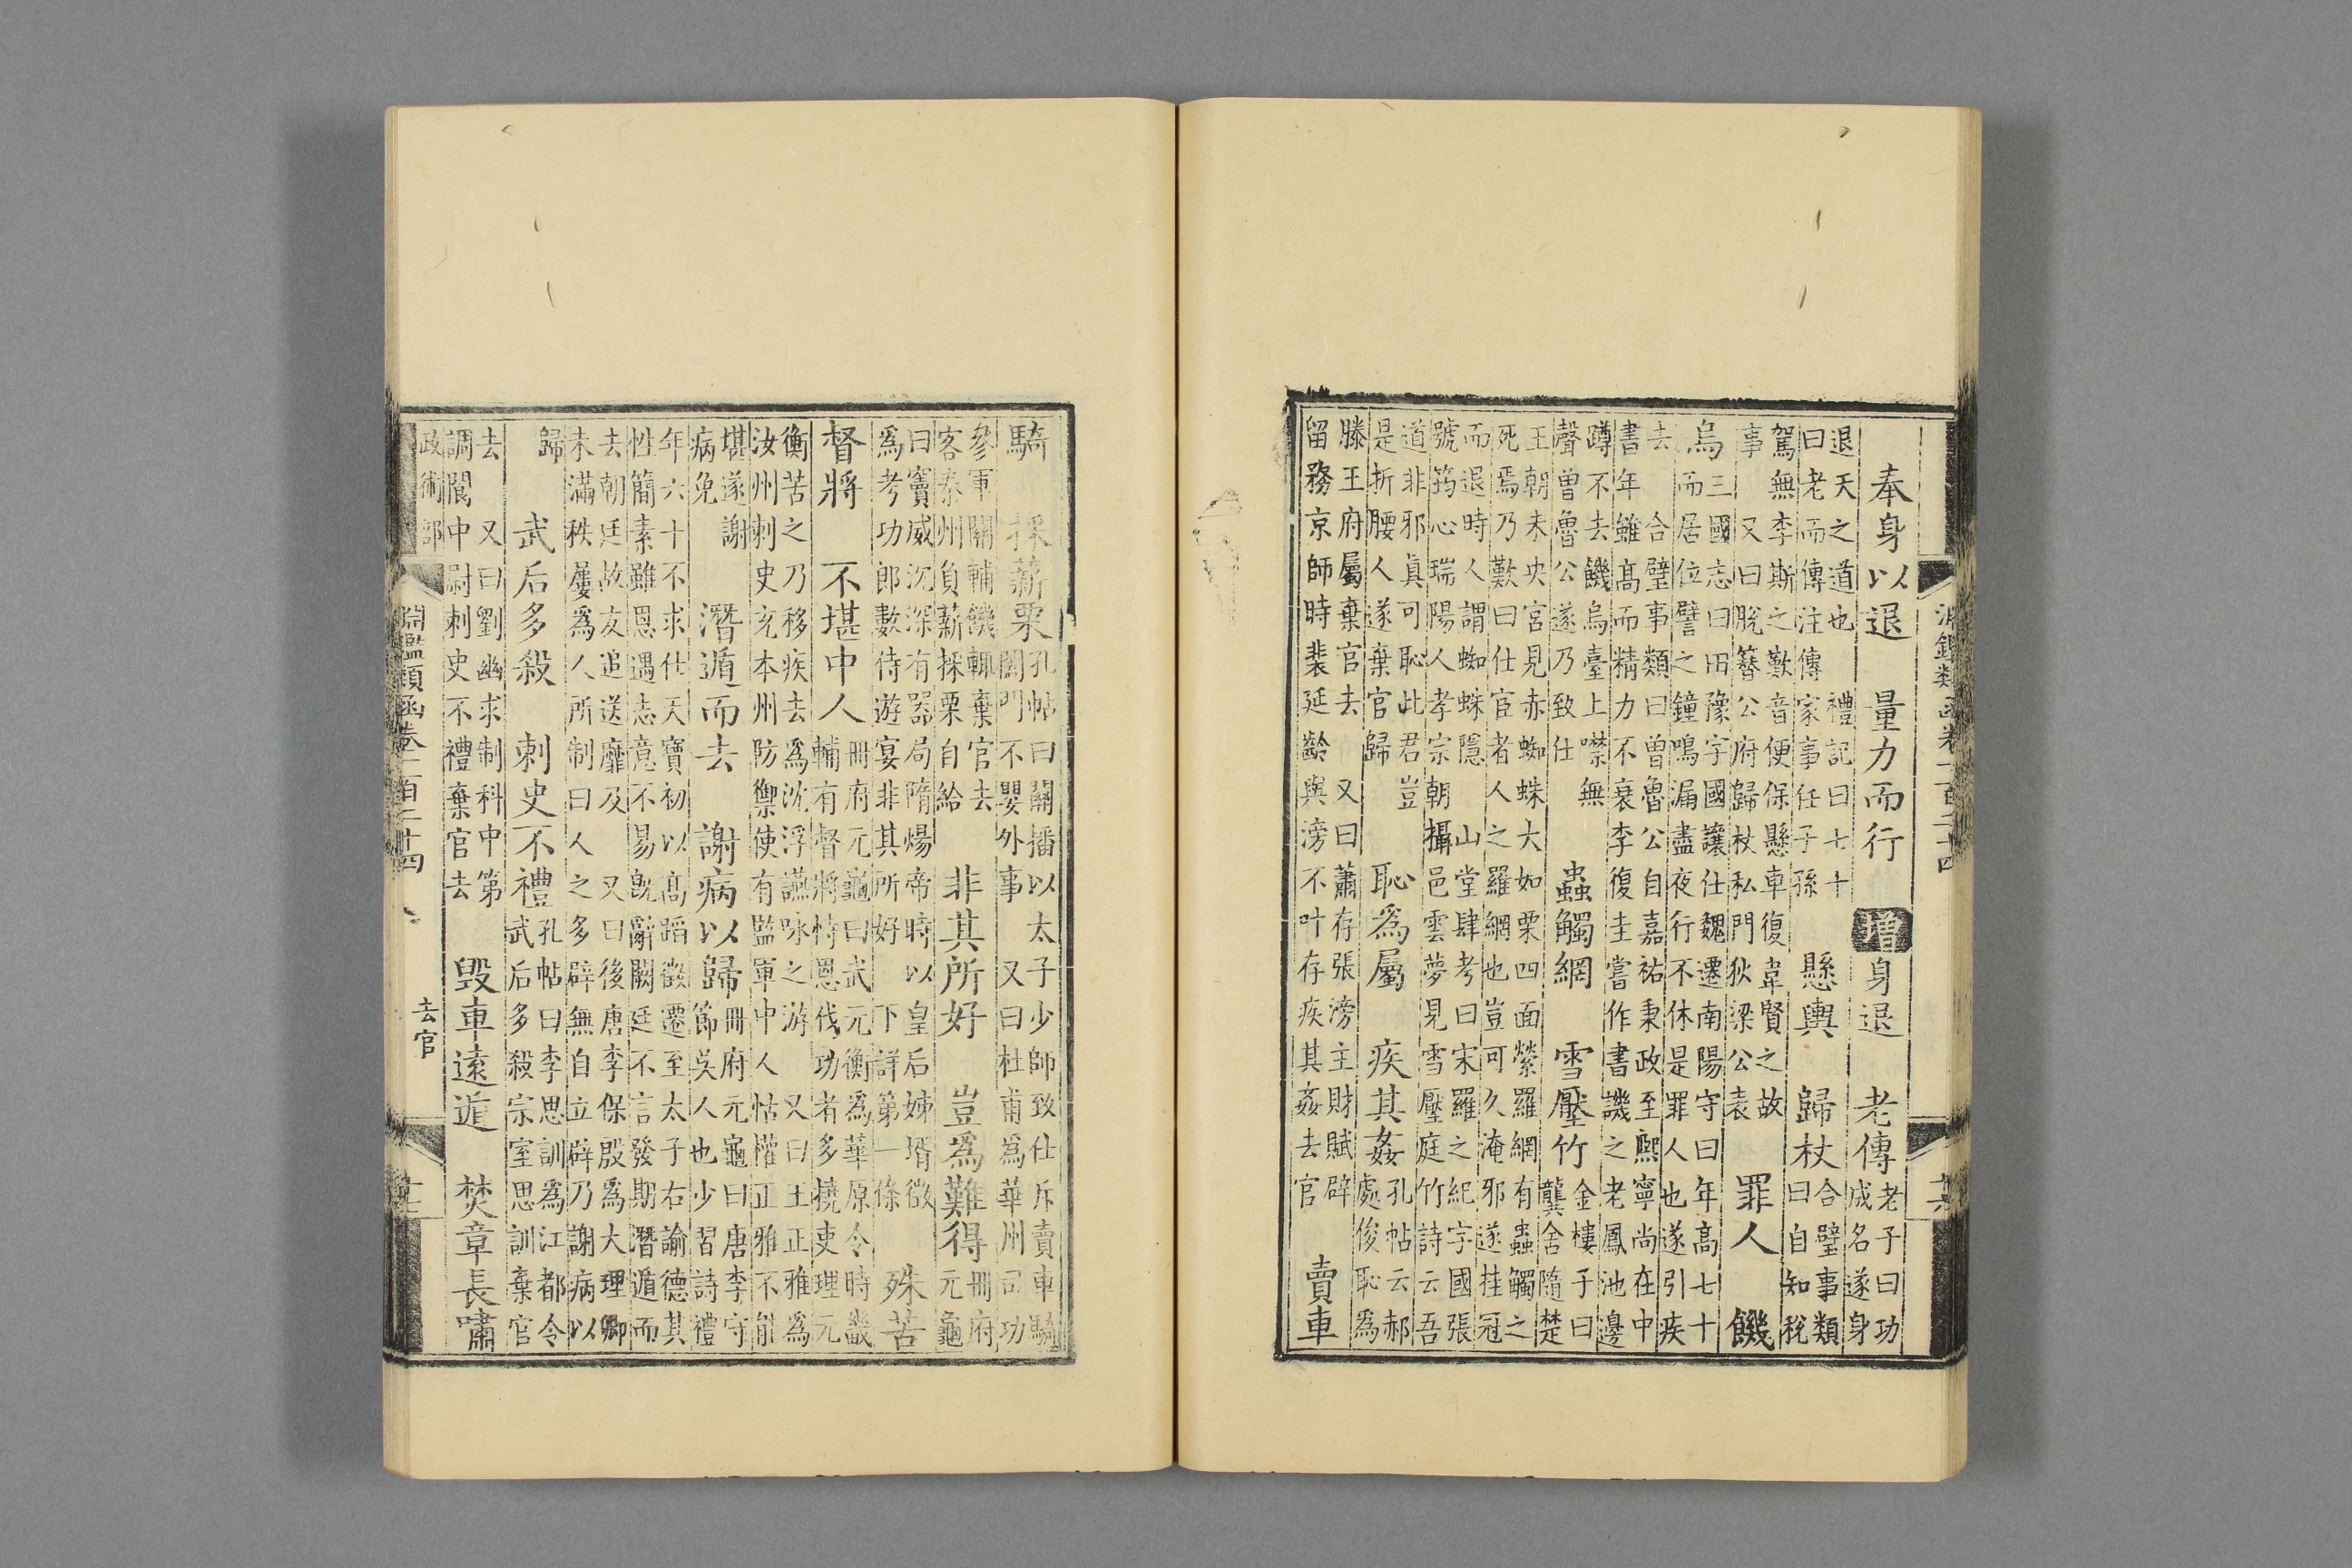 淵鑑類函卷一百二十四
奉身以退　量力而行　增身退　老傳老子曰功成名遂身
退天之道也　禮記曰七十曰老而傳注傳家事任子孫　懸輿　歸杖合璧事類曰自知稅
駕無李斯之歎音便保懸車復韋賢之故事　又曰脫簪公府歸杖私門狄梁公表　罪人　饑
烏三國志曰田豫字國讓仕魏遷南陽守曰年高七十而居位譬之鐘鳴漏盡夜行不休是罪人也遂引疾
去　合璧事類曰曾魯公自嘉祐秉政至熙寧尚在中書年雖高而精力不衰李復圭嘗作書譏之老鳳池邊
蹲不去饑烏臺上噤無聲曾魯公遂乃致仕　蟲觸網　雪壓竹金樓子曰龔舍隨楚
王朝未央宮見赤蜘蛛大如栗四面縈羅網有蟲觸之死焉乃歎曰仕宦者人之羅網也豈可久淹邪遂挂冠
而退時人謂蜘蛛隱　山堂肆考曰宋羅之紀字國張號筠心瑞陽人孝宗朝攝邑雲夢見雪壓庭竹詩云吾
道非邪真可恥此君豈是折腰人遂棄官歸　恥爲屬　疾其姦孔帖云郝處俊恥爲
滕王府屬棄官去　又曰蕭存張滂主財賦辟留務京師時裴延齡與滂不叶存疾其姦去官　賣車
騎　採薪栗孔帖曰關播以太子少師致仕斥賣車騎闔門不嬰外事　又曰杜甫爲華州司功
參軍關輔饑輒棄官去客秦州負薪採栗自給　非其所好　豈爲難得冊府元龜
曰竇威沉深有器局隋煬帝時以皇后姊壻徵爲考功郎數侍遊宴非其所好　下詳第一條　殊苦
督將　不堪中人冊府元龜曰武元衡爲華原令時畿輔有督將恃恩伐功者多撓吏理元
衡苦之乃移疾去爲沈浮讌咏之游　又曰王正雅爲汝州刺史充本州防禦使有監軍中人怙權正雅不能
堪遂謝病免　潛遁而去　謝病以歸冊府元龜曰唐李守節吳人也少習詩禮
年六十不求仕天寶初以高蹈徵遷至太子右諭德其性簡素雖恩遇志意不易旣辭闕廷不言發期潛遁而
去朝廷故友追送靡及　又曰後唐李保殷爲大理卿未滿秩屢爲人所制曰人之多辟無自立辟乃謝病以
歸　武后多殺　刺史不禮孔帖曰李思訓爲江都令武后多殺宗室思訓棄官
去　又曰劉幽求制科中第調閬中尉刺史不禮棄官去　毀車遠遁　焚章長嘯
政術部
淵鑑類函卷一百二十四
去官